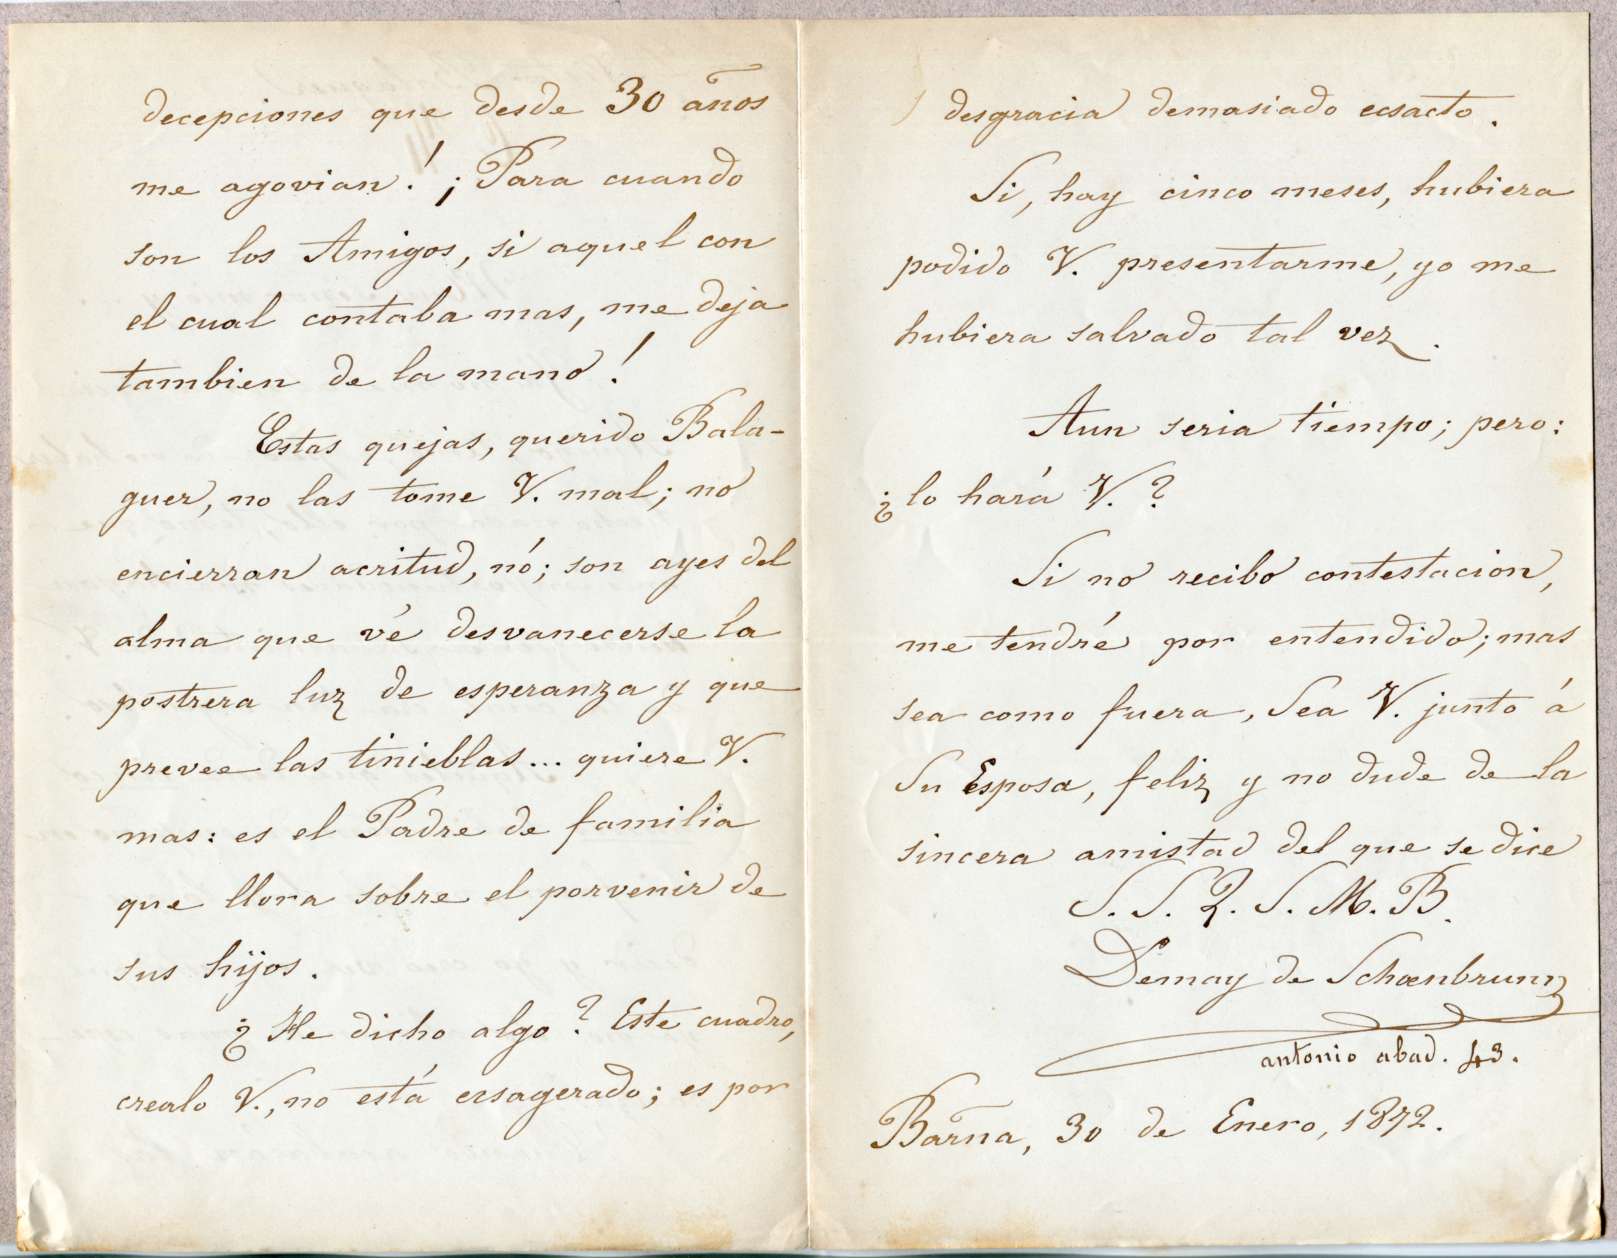 decepciones que desde 30 años
me agovian! ¡Para cuando
son los Amigos, si aquel con
el cual contaba mas, me deja
tambien de la mano!
Estas quejas, querido Bala-
guer, no las tome V. mal; no
encierran acritud, nó; son ayes del
alma que vé desvanecerse la
postrera luz de esperanza y que
prevee las tinieblas... quiere V.
mas: es el Padre de familia
que llora sobre el porvenir de
sus hijos.
¿He dicho algo? Este cuadro,
crealo V., no está ecsagerado; es por
desgracia demasiado ecsacto.
Si, hay cinco meses, hubiera
podido V. presentarme, yo me
hubiera salvado tal vez.
Aun seria tiempo; pero:
¿lo hará V.?
Si no recibo contestacion,
me tendré por entendido; mas
sea como fuera, Sea V. junto á
Su Esposa, feliz y no dude de la
sincera amistad del que se dice
S. S. Q. S. M. B.
Demay de Schœnbrunn
antonio abad. 43.
Barña, 30 de Enero, 1872.